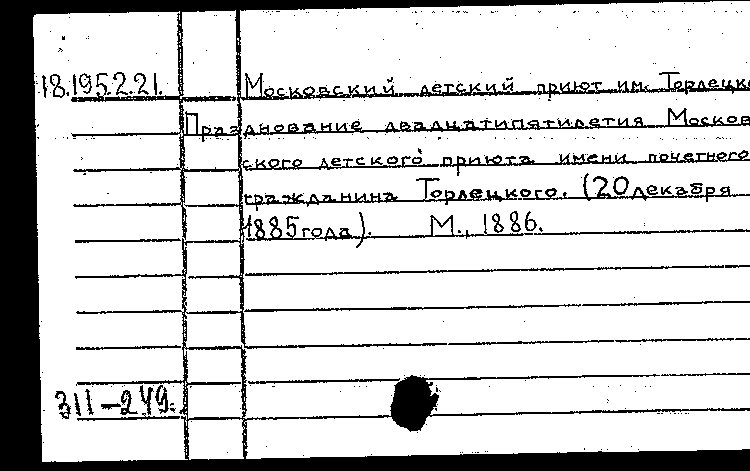 18.195.2.21. Московский детский приют им. Торлецко
Празднование двадцатипятилетия Москов
ского детского приюта имени почетного
гражданина Торлецкого. (20 декабря
1885 года). М., 1886.
311-249.